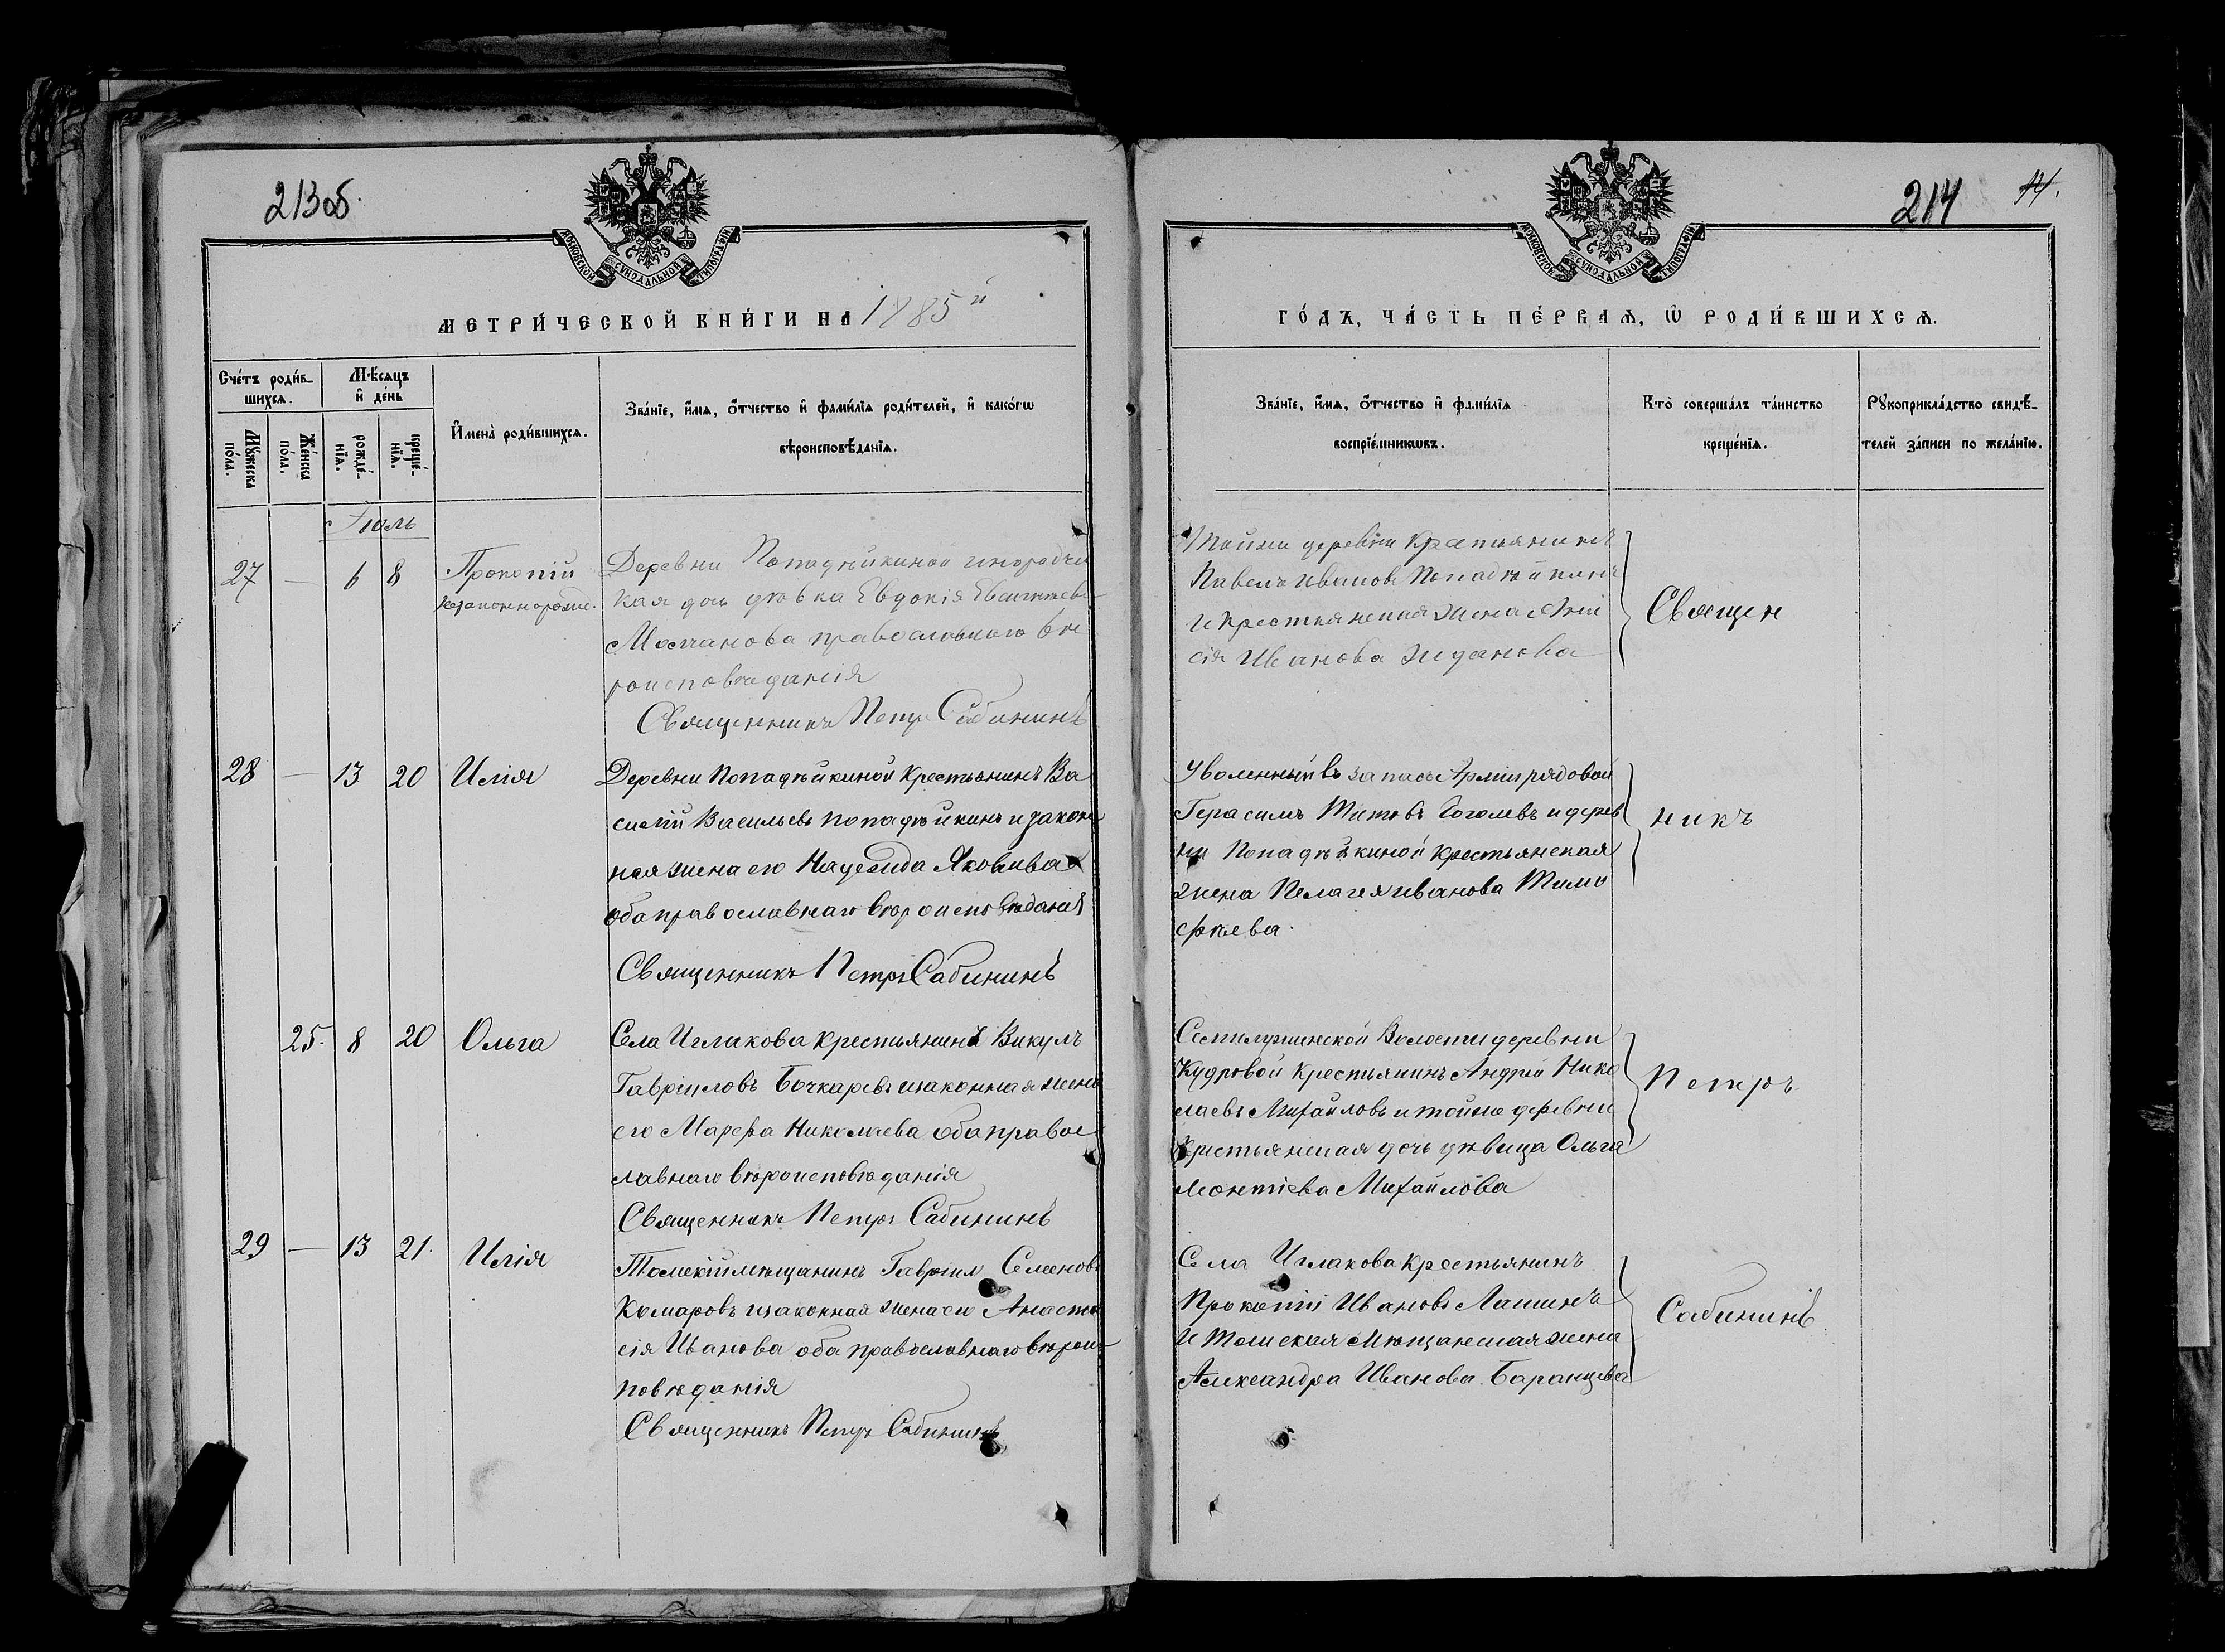 213об.
МОСКОВСКОЙ СУНОДАЛЬНОЙ ТИПОГРАФІИ
МЕТРИ́ЧЕСКОЙ КНИ́ГИ НА 1885 й
Сче́тъ роди́в-
шихсѧ.
Мѣ́сѧцъ
и҆ де́нь
Мꙋ́жеска
по́ла.
Же́нска
по́ла.
рожде́-
нїѧ.
креще́-
нїѧ.
И҆мена̀ роди́вшихсѧ.
Зва́нїе, и҆́мѧ, ѻ҆́тчество и҆ фами́лїѧ роди́телей, и҆ како́гѡ
вѣроисповѣ́данїѧ.
Іюль
27 — 6 8 Прокопій
незаконнорожд.
Деревни Попадѣйкиной инородче
кая дочь дѣвка Евдокія
Молчанова православнаго вѣ
роисповѣданія
Священникъ Петръ Сабининъ
28 — 13 20 Илія
Деревни Попадѣйкиной Крестьянинъ Ва
силій Васильевъ Попадѣйкинъ и закон
ная жена его Надежда Яковлева
оба православнаго вѣроисповѣданія
Священникъ Петръ Сабининъ
25. 8 20 Ольга
Села Иглакова Крестьянинъ Викулъ
Гавріиловъ Бочкаревъ и законная жена
его Марфа Николаева оба правос
лавнаго вѣроисповѣданія
Священникъ Петръ Сабининъ
29 — 13 21. Илія
Томскій мѣщанинъ Гавріил Семеновъ
Комаровъ и законная жена его Анаста
сія Иванова оба православнаго вѣроис
повѣданія
Священникъ Петръ Сабининъ
214 14.
МОСКОВСКОЙ СУНОДАЛЬНОЙ ТИПОГРАФІИ
ГО́ДЪ, ЧА́СТЬ ПЕ́РВАѦ, Ѡ҆ РОДИ́ВШИХСѦ.
Зва́нїе, и҆́мѧ, ѻ҆́тчество и҆ фами́лїѧ
воспрїе́мникѡвъ.
Кто̀ соверша́лъ та́инство
креще́нїѧ.
Рꙋкоприкла́дство свидѣ́-
телей за́писи по жела́нїю.
Тойже деревни Крестьянинъ
Павелъ Ивановъ Попадѣйкинъ
и крестьянская жена
сія Иванова Жданова
Священ
Уволенный въ запасъ Арміи рядовой
Герасимъ Титовъ Гоголевъ и дерев
ни Попадѣйкиной Крестьянская
жена Пелагея Иванова Тимо
феева.
никъ
Семилужинской Волости деревни
Кудровой Крестьянинъ Андрей Нико
лаевъ Михайловъ и тойже деревни
Крестьянская дочь дѣвица Ольга
Леонтіева Михайлова
Петръ
Села Иглакова Крестьянинъ
Прокопій Ивановъ Лашинъ
и Томская Мѣщанская жена
Александра Иванова Баранцева
Сабининъ